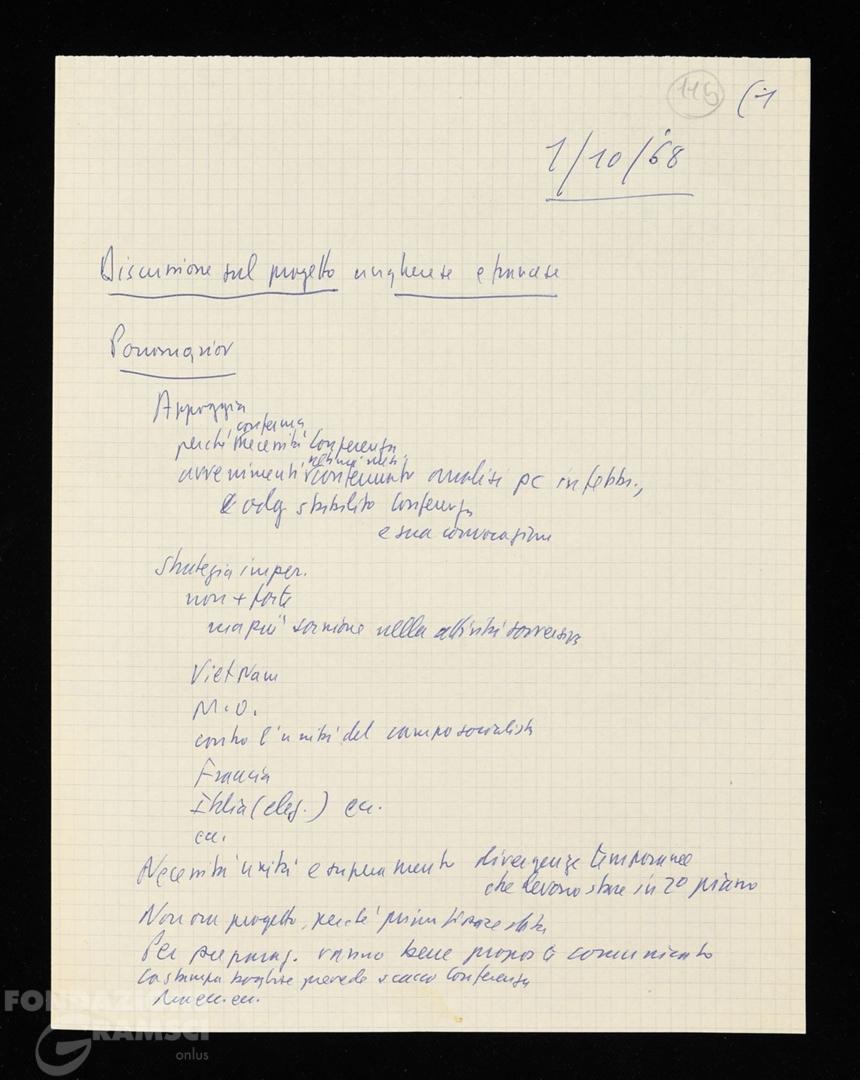 115 (1
1/10/68
Discussione sul progetto ungherese e francese
Ponomariov
Appoggia
conferma
perché necessità Conferenza
avvenimenti contenuto analisi pc in febbr.,
e odg stabilito Conferenza
e sua convocazione
strategia imper.
non + forte
ma più nella attività sovversiva
VietNam
M.O.
contro l'unità del campo socialista
Francia
Italia (elez.) ecc.
ecc.
Necessità unità e superamento divergenze temporanee
che devono stare in 2o piano
Non ora progetto, perché prima
Per preparaz. vanno bene proposte comunicato
La stampa borghese prevede scacco Conferenza
ecc. ecc.
FONDAZIONE
GRAMSCI
onlus